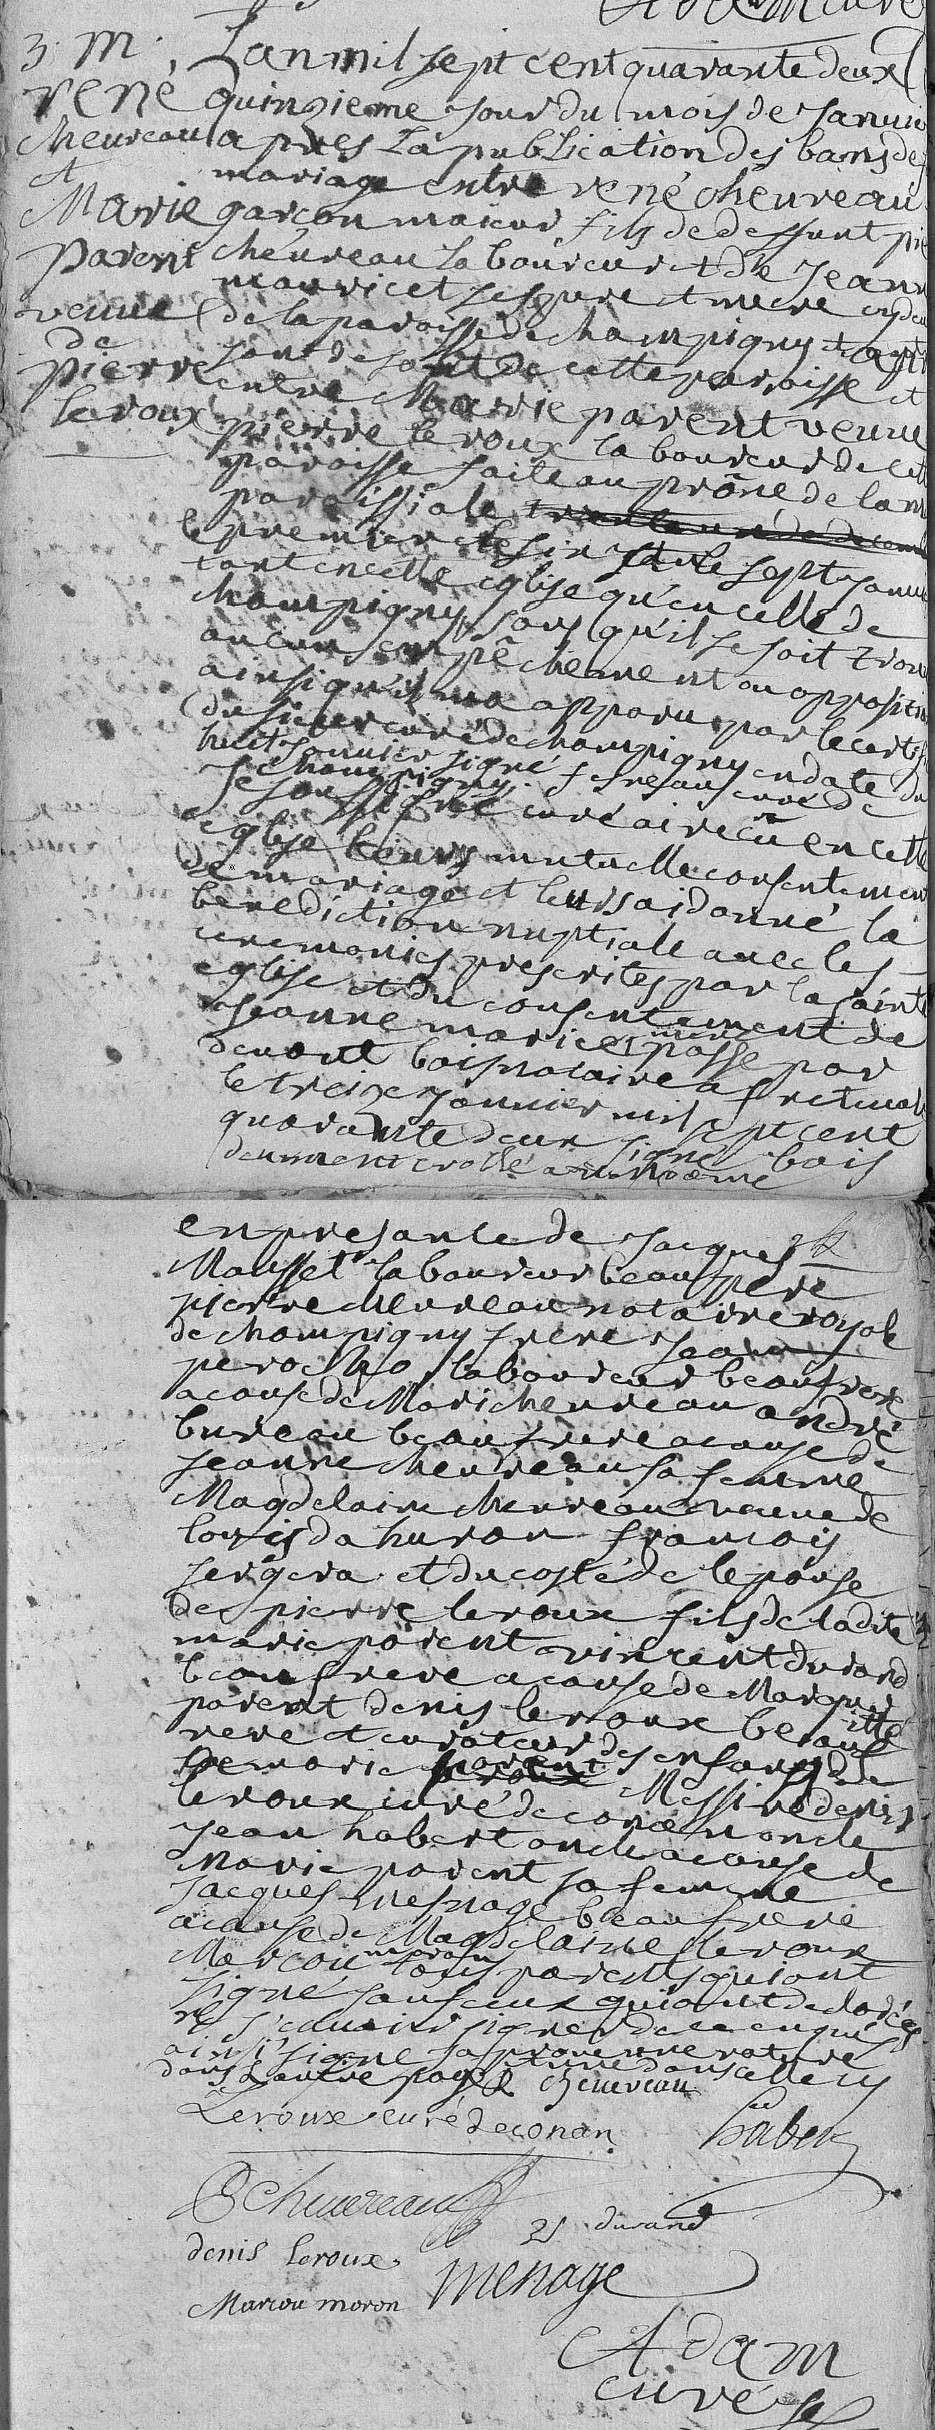 3. M.
rené
cheureau
et
Marie
parent
veuve
de
pierre
le roux
Lan mil sept cent quarante deux
quinzieme jour du mois de janvie
apres La publication des bans de
mariage entre rené cheureau
garcon maieur fils de deffunt pie
cheureau laboureur et de Jeann
mauricet ses pere et mere
de la paroisse de champigny et a pre
sant de fait de cette paroisse et
entre Marie parent veuve
pierre le roux laboureur de cett
paroisse faite au prône de la m
paroissiale
le premier le six et le sept janvie
tant en cette eglise qu'en celle de
champigny sans qu'il se soit trouv
aucun empêchement ou oppositio
ainsi qu'il m'a apparu par le certif
du sieur curé de champigny en date du
huit janvier signé fesneau curé de
champigny
Je soussigné curé ai recû en cette
eglise leurs mutuelle consentement
de mariage et leur ai donné la
benediction nuptiale avec les
ceremonies prescrites par la sainte
eglise et du consentement de
Jeanne mauricet passé par
devant bois notaire a freteval
le treize janvier mil sept cent
quarante deux signé bois
deument controllé au meme
en presance de jacques
Mousset laboureur beaupere
pierre cheureau notaire royale
de champigny frere Jean
peroche laboureur beaufrere
a cause de Marie cheureau andré
bureau beaufrere a cause de
jeanne cheureau sa femme
Magdelaine cheureau veuve de
louis dahuron francois
sergera et du costé de l'epouse
de pierre le roux fils de ladite
marie parent vincent durand
beaufrere a cause de Marguerite
parent denis le roux beauf
rere et curateur des enfans de
de marie parent Messire denis
le roux curé de conan oncle
jean habert oncle a cause de
Marie parent sa femme
jacques mesnage beaufrere
a cause de Magdelaine le roux
Marcou moron tous parents qui ont
signé sauf ceux qui ont declaré
ne scavoir signer de ce enquis
ainsi signé
dans l'autre page cheureau
Leroux curé de conan habert
P Cheureau
durand
denis leroux
menage
Marcou moron
Adam
curé